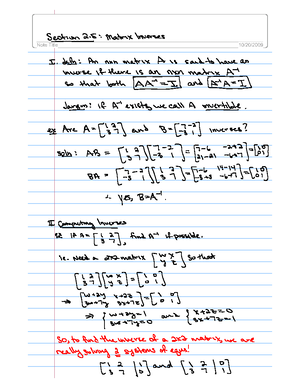 Section 2.5: Matrix Inverses
Note Title
10/20/2008
I. defn: An nxn matrix A is said to have an
inverse if there is an nxn matrix A⁻¹
so that both AA⁻¹ = I and A⁻¹A = I.
Jargon: if A⁻¹ exists, we call A invertible.
ex Are A = [1 2; 3 7] and B = [7 -2; -3 1] inverses?
soln: AB = [1 2; 3 7][7 -2; -3 1] = [7-6 -2+2; 21-21 -6+7] = [1 0; 0 1]
BA = [7 -2; -3 1][1 2; 3 7] = [7-6 14-14; -3+3 -6+7] = [1 0; 0 1]
∴ yes, B = A⁻¹.
II. Computing Inverses
ex If A = [1 2; 3 7], find A⁻¹ if possible.
ie. Need a 2x2 matrix [w x; y z] so that
[1 2; 3 7][w x; y z] = [1 0; 0 1]
⇒ [w+2y x+2z; 3w+7y 3x+7z] = [1 0; 0 1]
⇒ {w+2y=1 3w+7y=0 and {x+2z=0 3x+7z=1
So, to find the inverse of a 2x2 matrix, we are
really solving 2 systems of eqns!
[1 2 | 1; 3 7 | 0] and [1 2 | 0; 3 7 | 1]